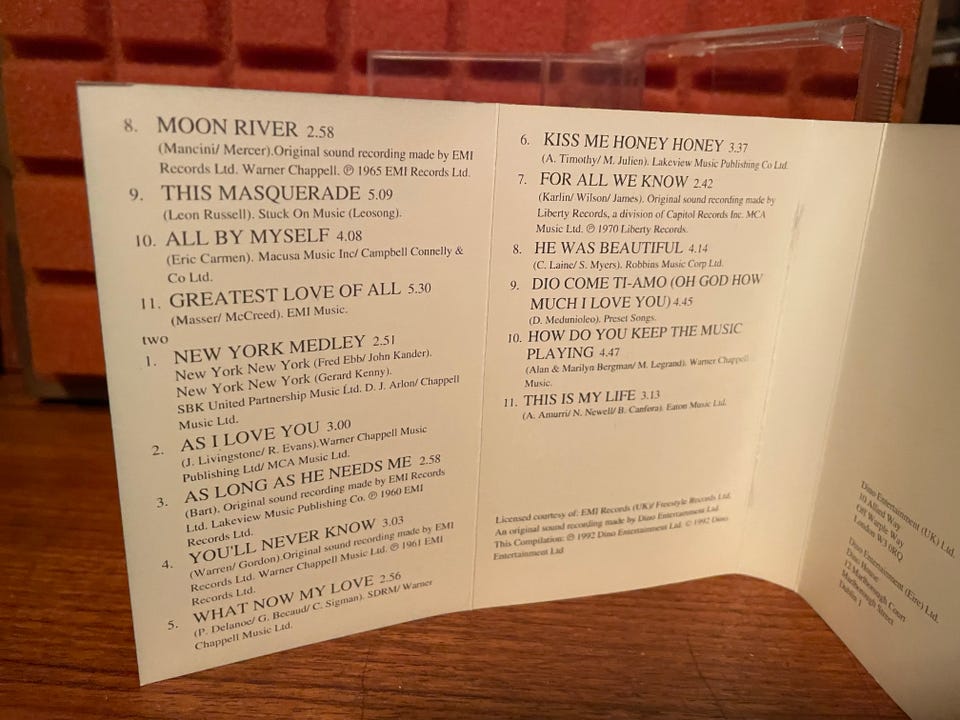 8. MOON RIVER 2.58
(Mancini/ Mercer).Original sound recording made by EMI
Records Ltd. Warner Chappell. ℗ 1965 EMI Records Ltd.
9. THIS MASQUERADE 5.09
(Leon Russell). Stuck On Music (Leosong).
10. ALL BY MYSELF 4.08
(Eric Carmen). Macusa Music Inc/ Campbell Connelly &
Co Ltd.
11. GREATEST LOVE OF ALL 5.30
(Masser/ McCreed). EMI Music.
two
1. NEW YORK MEDLEY 2.51
New York New York (Fred Ebb/ John Kander).
New York New York (Gerard Kenny).
SBK United Partnership Music Ltd. D. J. Arlon/ Chappell
Music Ltd.
2. AS I LOVE YOU 3.00
(J. Livingstone/ R. Evans).Warner Chappell Music
Publishing Ltd/ MCA Music Ltd.
3. AS LONG AS HE NEEDS ME 2.58
(Bart). Original sound recording made by EMI Records
Ltd. Lakeview Music Publishing Co. ℗ 1960 EMI
Records Ltd.
4. YOU'LL NEVER KNOW 3.03
(Warren/ Gordon).Original sound recording made by EMI
Records Ltd. Warner Chappell Music Ltd. ℗ 1961 EMI
Records Ltd.
5. WHAT NOW MY LOVE 2.56
(P. Delanoe/ G. Becaud/ C. Sigman). SDRM/ Warner
Chappell Music Ltd.
6. KISS ME HONEY HONEY 3.37
(A. Timothy/ M. Julien). Lakeview Music Publishing Co Ltd.
7. FOR ALL WE KNOW 2.42
(Karlin/ Wilson/ James). Original sound recording made by
Liberty Records, a division of Capitol Records Inc. MCA
Music Ltd. ℗ 1970 Liberty Records.
8. HE WAS BEAUTIFUL 4.14
(C. Laine/ S. Myers). Robbins Music Corp Ltd.
9. DIO COME TI-AMO (OH GOD HOW
MUCH I LOVE YOU) 4.45
(D. Medunioleo). Preset Songs.
10. HOW DO YOU KEEP THE MUSIC
PLAYING 4.47
(Alan & Marilyn Bergman/ M. Legrand). Warner Chappell
Music.
11. THIS IS MY LIFE 3.13
(A. Amurri/ N. Newell/ B. Canfora). Eaton Music Ltd.
Licensed courtesy of: EMI Records (UK)/ Freestyle Records Ltd.
An original sound recording made by Dino Entertainment Ltd
This Compilation: ℗ 1992 Dino Entertainment Ltd. © 1992 Dino
Entertainment Ltd
Dino Entertainment (UK) Ltd.
10 Alfred Way
Off Warple Way
London W3 0RQ
Dino Entertainment (Eire) Ltd.
Dino House
12 Marlborough Court
Marlborough Street
Dublin 1